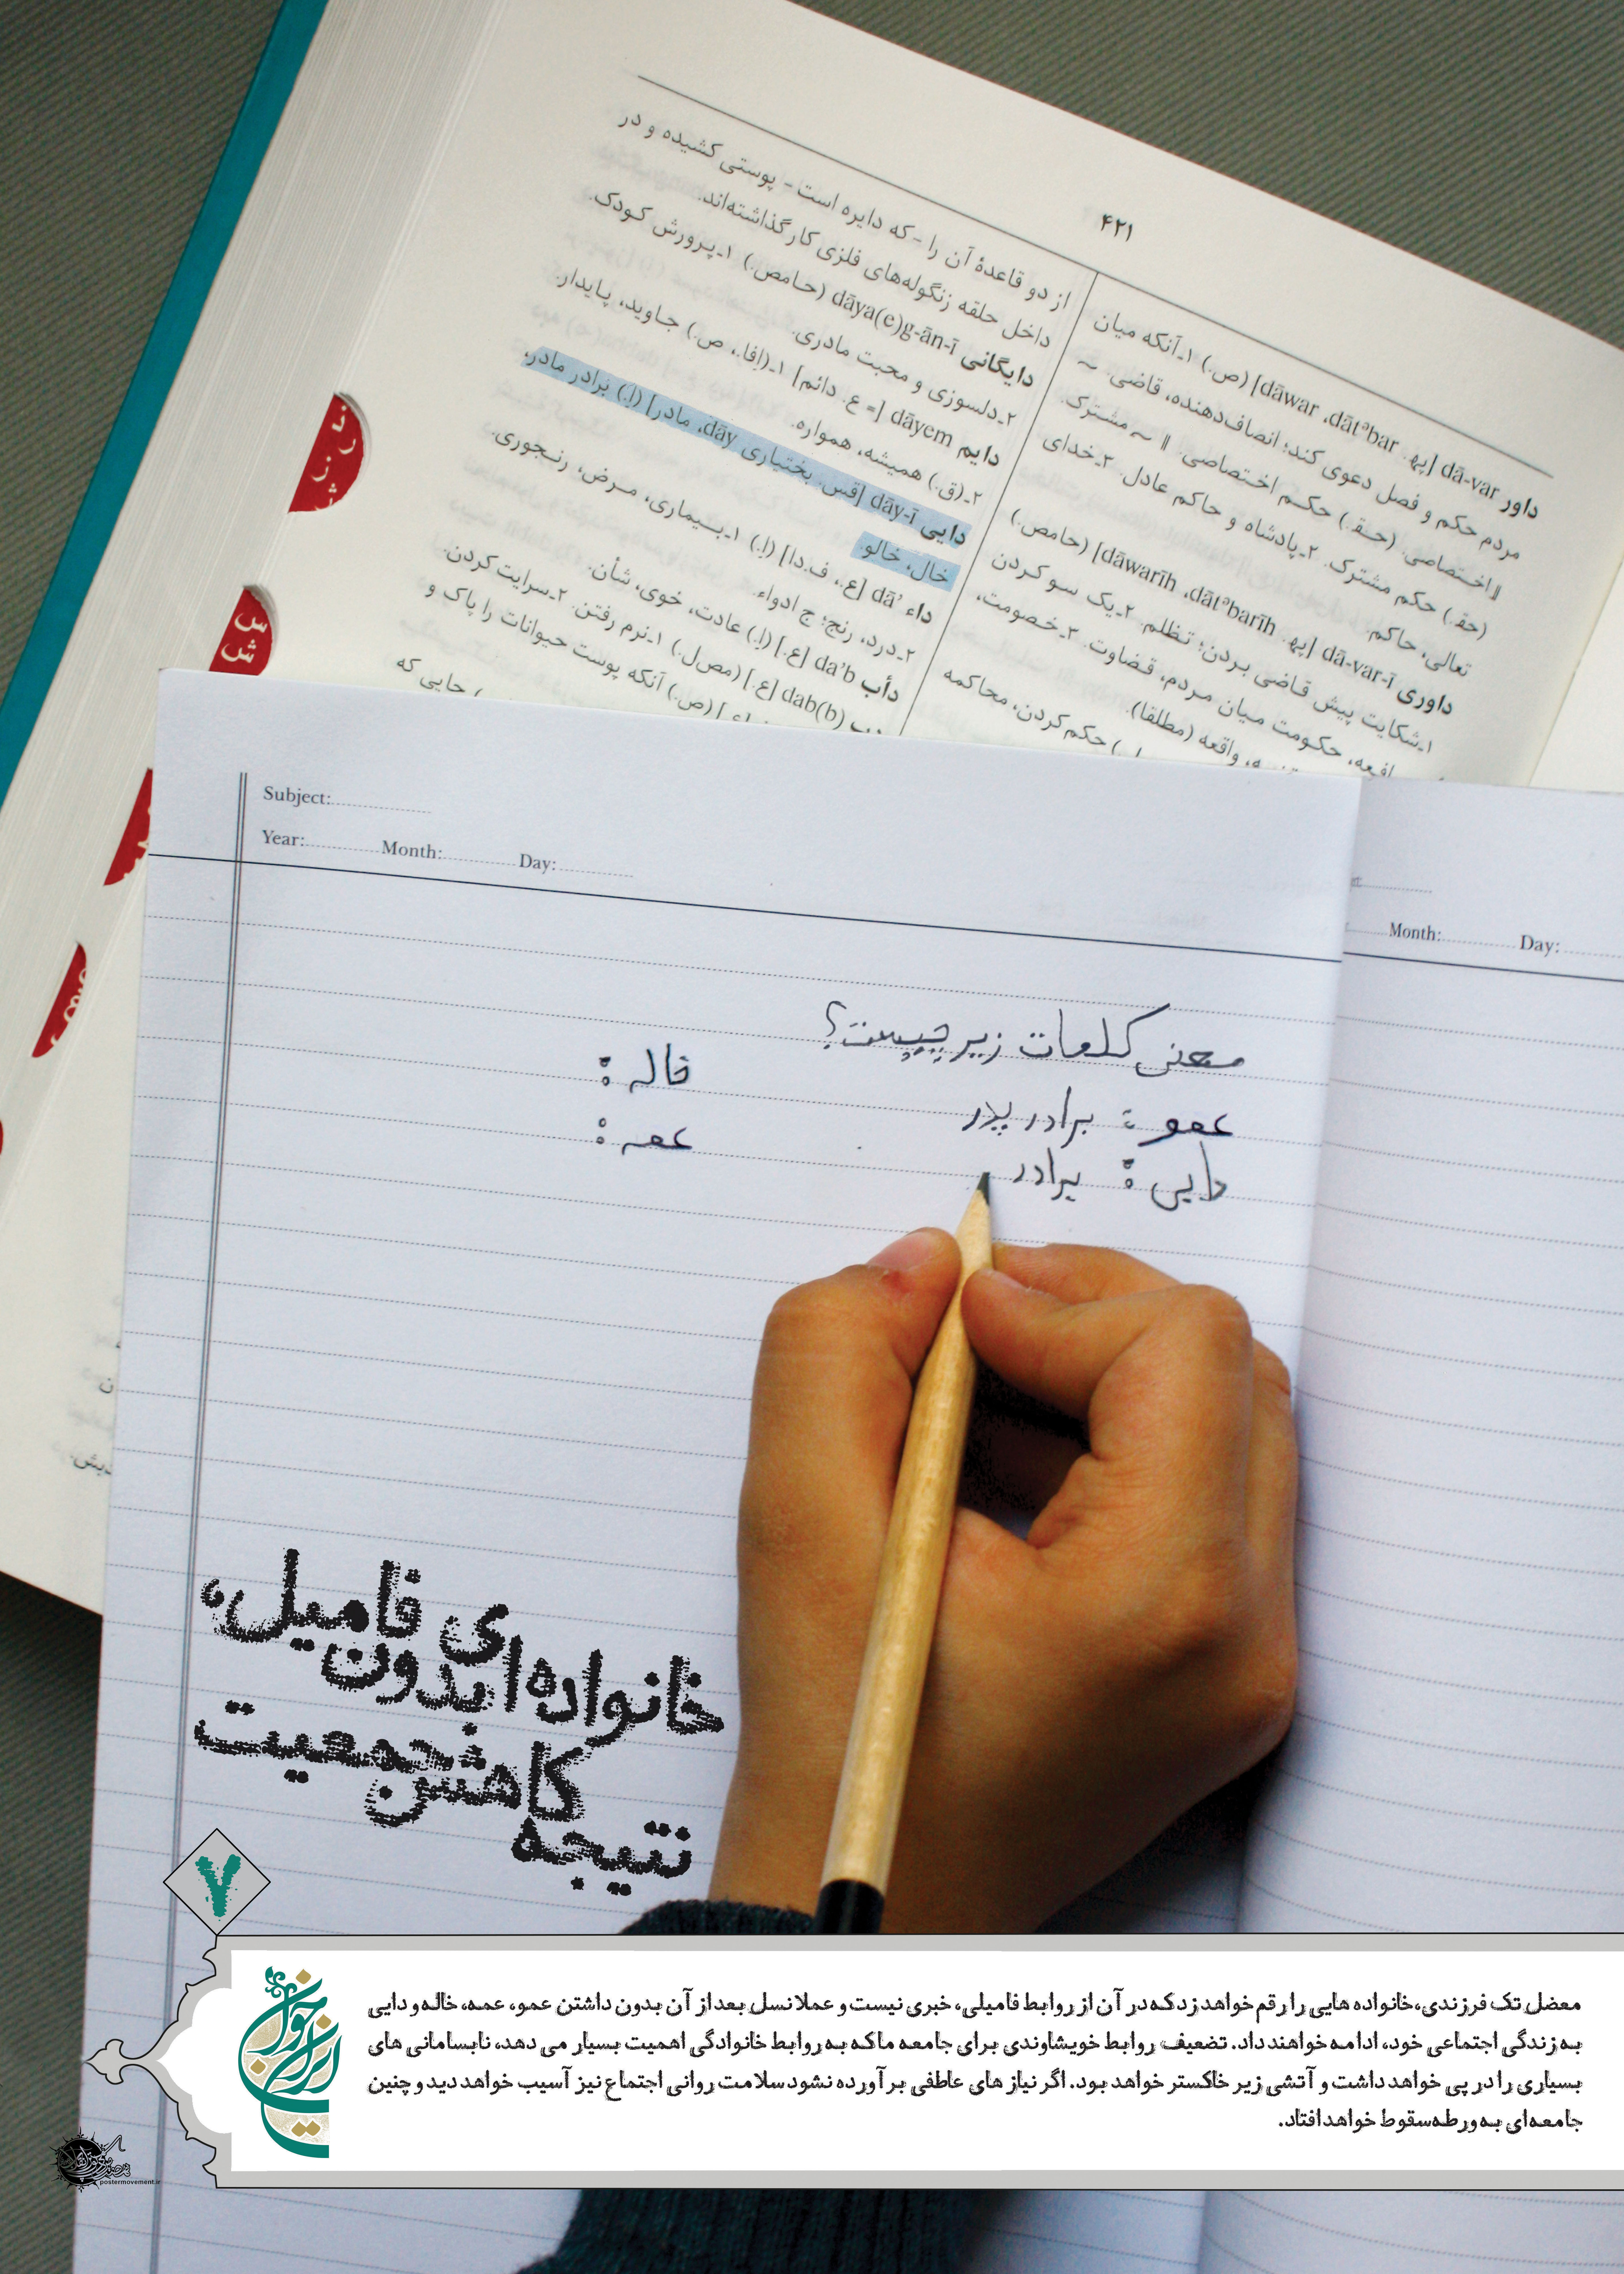 ۴۲۱
داور dā-var [په. dāwar ،dātᵊbar] (ص.) ۱ـ آنکه میان
مردم حکم و فصل دعوی کند؛ انصاف‌دهنده، قاضی. ~
اختصاصی. (حـقـ.) حکـم اخـتصاصی. ॥ ~ مشترک.
(حقـ.) حکم مشترک. ۲ـ پادشاه و حاکم عادل. ۳ـ خدای
تعالی، حاکم.
داوری dā-var-ī [په. dāwarīh ،dātᵊbarīh] (حامص.)
۱ـ شکایت پیش قـاضی بـردن؛ تـظلم. ۲ـ یک سـو کـردن
افعه، حکـومت میان مـردم، قـضاوت. ۳ـ خـصومت،
واقعه (مطلقا).
) حکم کردن، محاکمه
از دو قاعدهٔ آن را - که دایره است - پوستی کشیده و در
داخل حلقه زنگوله‌های فلزی کار گذاشته‌اند.
دایگانی dāya(e)g-ān-ī (حـامص.) ۱ـ پـرورش کـودک.
۲ـ دلسوزی و محبت مادری.
دایم dāyem [= ع. دائم] ۱ـ (اِفا.، ص.) جـاوید، پـایدار.
۲ـ (ق.) همیشه، همواره.
دایی dāy-ī [قس. بختیاری dāy، مادر] (اِ.) برادر مادر،
خال، خالو.
داء dā' [ع.، ف.دا] (اِ.) ۱ـ بـیماری، مـرض، رنـجوری.
۲ـ درد، رنج؛ ج ادواء.
دأب da'b [ع.] (اِ.) عادت، خوی، شأن.
dab(b) [ع.] (مصل.) ۱ـ نرم رفتن. ۲ـ سرایت کردن.
(ص.) آنکه پوست حیوانات را پاک و
) جایی که
ذ
ر ز
ژ
س
ش
Subject:
Year: Month: Day:
Month: Day:
معنی کلمات زیر چیست؟
عمو : برادر پدر
دایی : برادر
خاله :
عمه :
خانواده ای بدون فامیل،
نتیجه کاهش جمعیت
۷
ایران جوان
معضل تک فرزندی، خانواده هایی را رقم خواهد زد که در آن از روابط فامیلی، خبری نیست و عملا نسل بعد از آن بدون داشتن عمو، عمه، خاله و دایی
به زندگی اجتماعی خود، ادامه خواهند داد. تضعیف روابط خویشاوندی برای جامعه ما که به روابط خانوادگی اهمیت بسیار می دهد، نابسامانی های
بسیاری را در پی خواهد داشت و آتشی زیر خاکستر خواهد بود. اگر نیاز های عاطفی بر آورده نشود سلامت روانی اجتماع نیز آسیب خواهد دید و چنین
جامعه‌ای به ورطه سقوط خواهد افتاد.
postermovement.ir